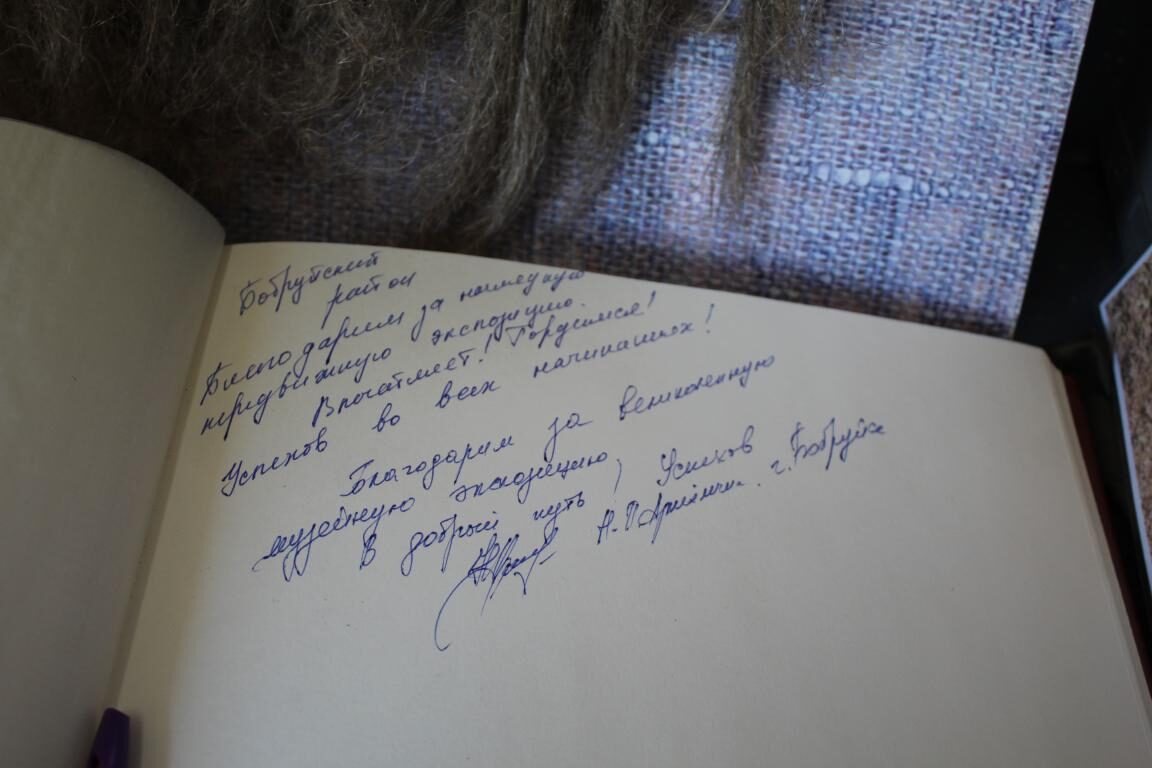 Бобруйский
район
Благодарим за наглядную
передвижную экспозицию.
Впечатляет! Гордимся!
Успехов во всех начинаниях!
Благодарим за великолепную
музейную экспозицию,
В добрый путь, Успехов
Н.П. г. Бобруйск